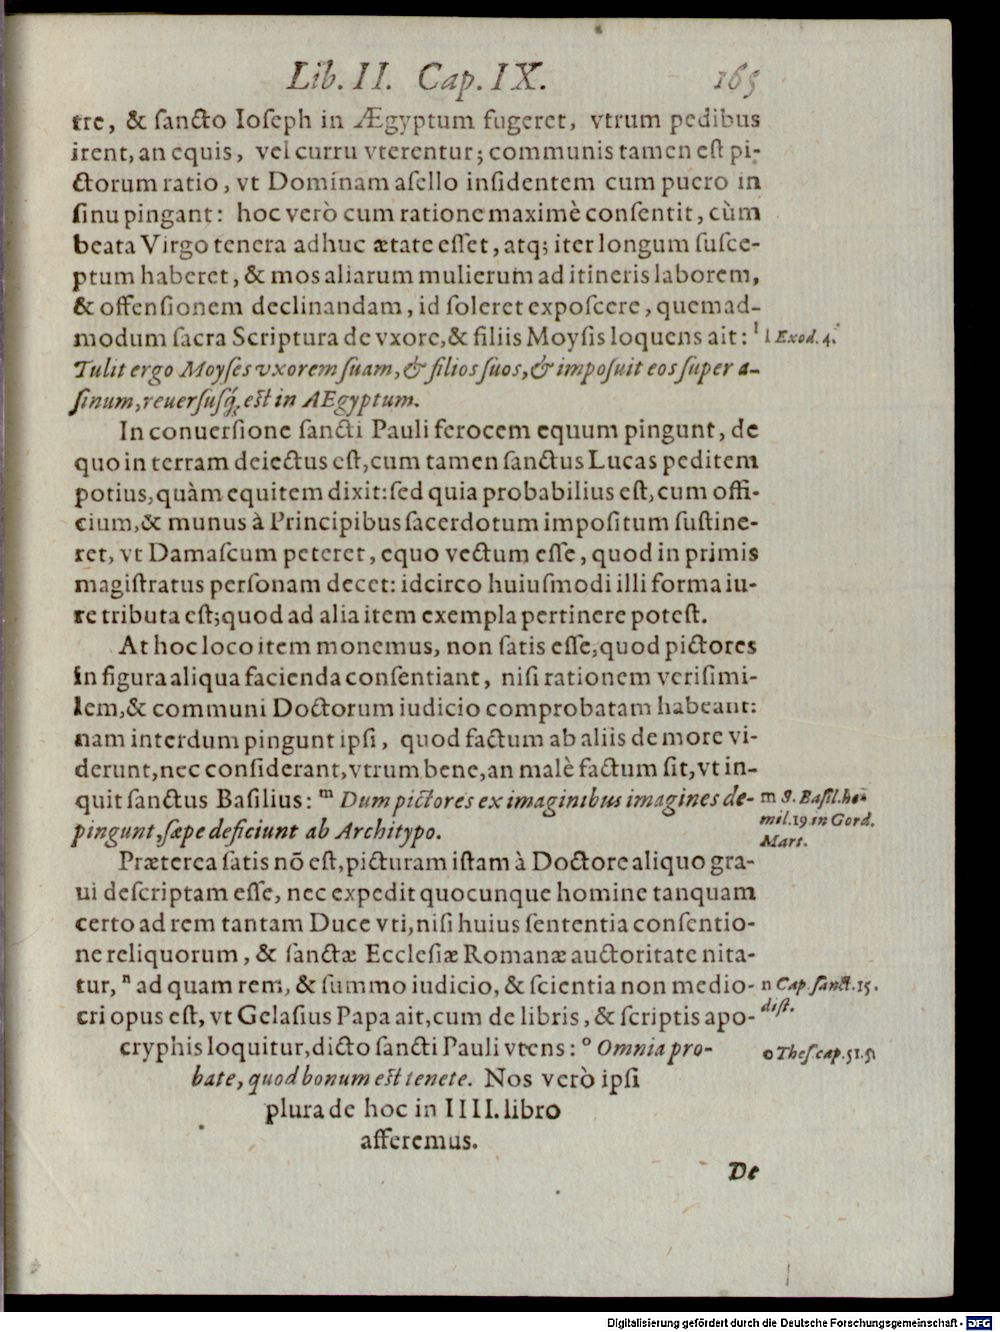 Lib. II. Cap. IX. 165
tre, & sancto Ioseph in Ægyptum fugeret, vtrum pedibus
irent, an equis, vel curru vterentur; communis tamen est pi-
ctorum ratio, vt Dominam asello insidentem cum puero in
sinu pingant: hoc verò cum ratione maximè consentit, cùm
beata Virgo tenera adhuc ætate esset, atq; iter longum susce-
ptum haberet, & mos aliarum mulierum ad itineris laborem,
& offensionem declinandam, id soleret exposcere, quemad-
modum sacra Scriptura de vxore, & filiis Moysis loquens ait: l
l Exod. 4.
Tulit ergo Moyses vxorem suam, & filios suos, & imposuit eos super a-
sinum, reuersusq́; est in AEgyptum.
In conuersione sancti Pauli ferocem equum pingunt, de
quo in terram deiectus est, cum tamen sanctus Lucas peditem
potius, quàm equitem dixit: sed quia probabilius est, cum offi-
cium, & munus à Principibus sacerdotum impositum sustine-
ret, vt Damascum peteret, equo vectum esse, quod in primis
magistratus personam decet: idcirco huiusmodi illi forma iu-
re tributa est; quod ad alia item exempla pertinere potest.
At hoc loco item monemus, non satis esse, quod pictores
in figura aliqua facienda consentiant, nisi rationem verisimi-
lem, & communi Doctorum iudicio comprobatam habeant:
nam interdum pingunt ipsi, quod factum ab aliis de more vi-
derunt, nec considerant, vtrum bene, an malè factum sit, vt in-
quit sanctus Basilius: m Dum pictores ex imaginibus imagines de-
pingunt, sæpe deficiunt ab Architypo.
m S. Basil. ho-
mil. 19 in Gord.
Mart.
Præterea satis nō est, picturam istam à Doctore aliquo gra-
ui descriptam esse, nec expedit quocunque homine tanquam
certo ad rem tantam Duce vti, nisi huius sententia consensio-
ne reliquorum, & sanctæ Ecclesiæ Romanæ auctoritate nita-
tur, n ad quam rem, & summo iudicio, & scientia non medio-
n Cap. sanct. 15.
dist.
cri opus est, vt Gelasius Papa ait, cum de libris, & scriptis apo-
cryphis loquitur, dicto sancti Pauli vtens: o Omnia pro-
o Thes. cap. 51. 5
bate, quod bonum est tenete. Nos verò ipsi
plura de hoc in IIII. libro
afferemus.
De
Digitalisierung gefördert durch die Deutsche Forschungsgemeinschaft - DFG